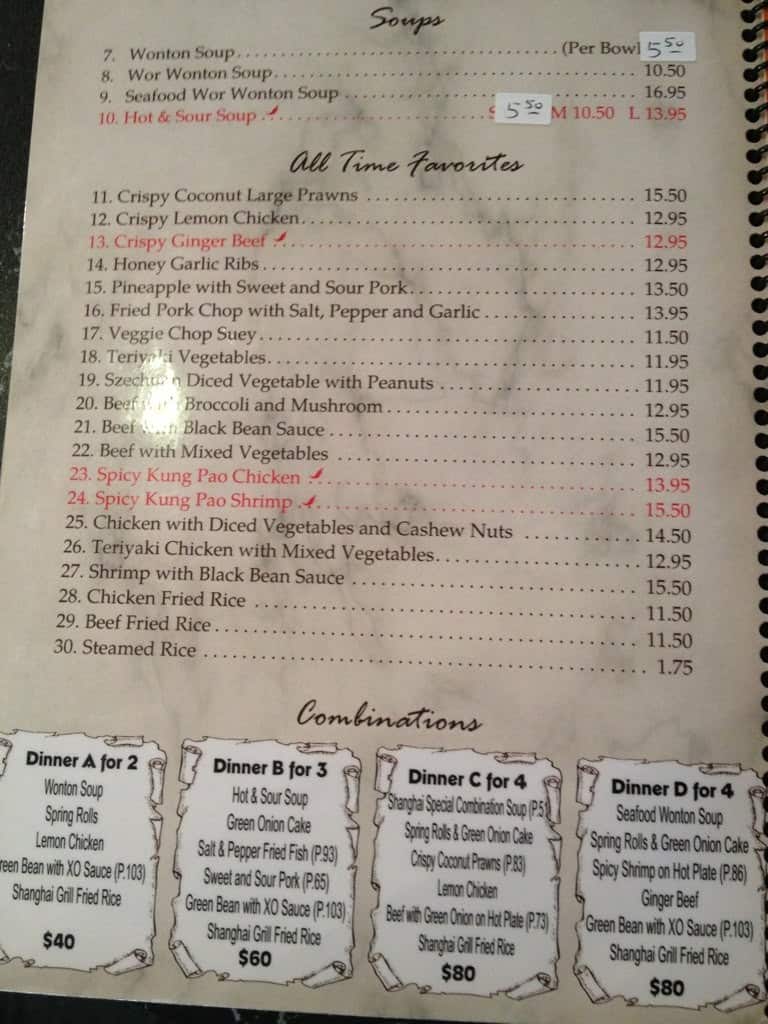 Soups
7. Wonton Soup (Per Bowl 5⁵⁰
8. Wor Wonton Soup 10.50
9. Seafood Wor Wonton Soup 16.95
10. Hot & Sour Soup S 5⁵⁰ M 10.50 L 13.95
All Time Favorites
11. Crispy Coconut Large Prawns 15.50
12. Crispy Lemon Chicken 12.95
13. Crispy Ginger Beef 12.95
14. Honey Garlic Ribs 12.95
15. Pineapple with Sweet and Sour Pork 13.50
16. Fried Pork Chop with Salt, Pepper and Garlic 13.95
17. Veggie Chop Suey 11.50
18. Teriyaki Vegetables 11.95
19. Szechuan Diced Vegetable with Peanuts 11.95
20. Beef with Broccoli and Mushroom 12.95
21. Beef with Black Bean Sauce 15.50
22. Beef with Mixed Vegetables 12.95
23. Spicy Kung Pao Chicken 13.95
24. Spicy Kung Pao Shrimp 15.50
25. Chicken with Diced Vegetables and Cashew Nuts 14.50
26. Teriyaki Chicken with Mixed Vegetables 12.95
27. Shrimp with Black Bean Sauce 15.50
28. Chicken Fried Rice 11.50
29. Beef Fried Rice 11.50
30. Steamed Rice 1.75
Combinations
Dinner A for 2
Wonton Soup
Spring Rolls
Lemon Chicken
reen Bean with XO Sauce (P.103)
Shanghai Grill Fried Rice
$40
Dinner B for 3
Hot & Sour Soup
Green Onion Cake
Salt & Pepper Fried Fish (P.93)
Sweet and Sour Pork (P.65)
Green Bean with XO Sauce (P.103)
Shanghai Grill Fried Rice
$60
Dinner C for 4
Shanghai Special Combination Soup (P.5
Spring Rolls & Green Onion Cake
Crispy Coconut Prawns (P.83)
Lemon Chicken
Beef with Green Onion on Hot Plate (P.73)
Shanghai Grill Fried Rice
$80
Dinner D for 4
Seafood Wonton Soup
Spring Rolls & Green Onion Cake
Spicy Shrimp on Hot Plate (P.86)
Ginger Beef
Green Bean with XO Sauce (P.103)
Shanghai Grill Fried Rice
$80